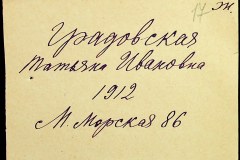 17 Ж.
Градовская
Татьяна Ивановна
1912
М. Морская 86